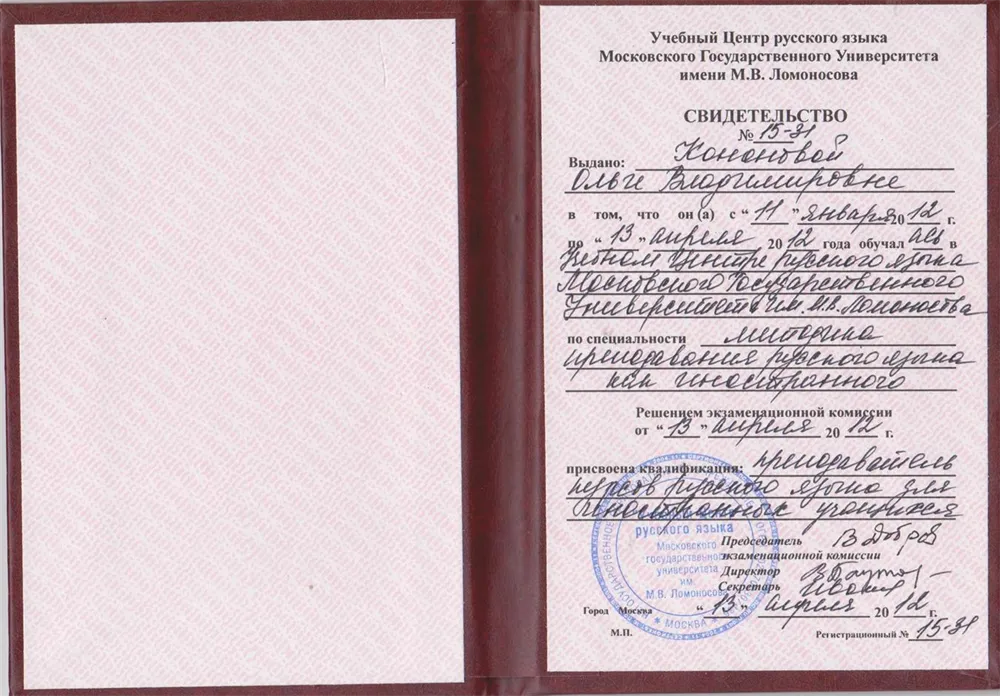 Учебный Центр русского языка
Московского Государственного Университета
имени М.В. Ломоносова
СВИДЕТЕЛЬСТВО
№ 15-31
Выдано: Кононовой
Ольге Владимировне
в том, что он(а) с “ 11 ” января 2012 г.
по “ 13 ” апреля 2012 года обучал ась в
Учебном Центре русского языка
Московского Государственного
Университета им. М.В. Ломоносова
по специальности методика
преподавания русского языка
как иностранного
Решением экзаменационной комиссии
от “ 13 ” апреля 20 12 г.
присвоена квалификация: преподаватель
курсов русского языка для
иностранных учащихся
русского языка
Московского
государственного
университета
им.
М.В. Ломоносова
* МОСКВА *
Председатель
экзаменационной комиссии
Директор
Секретарь
Город Москва “ 13 ” апреля 20 12 г.
М.П. Регистрационный № 15-31